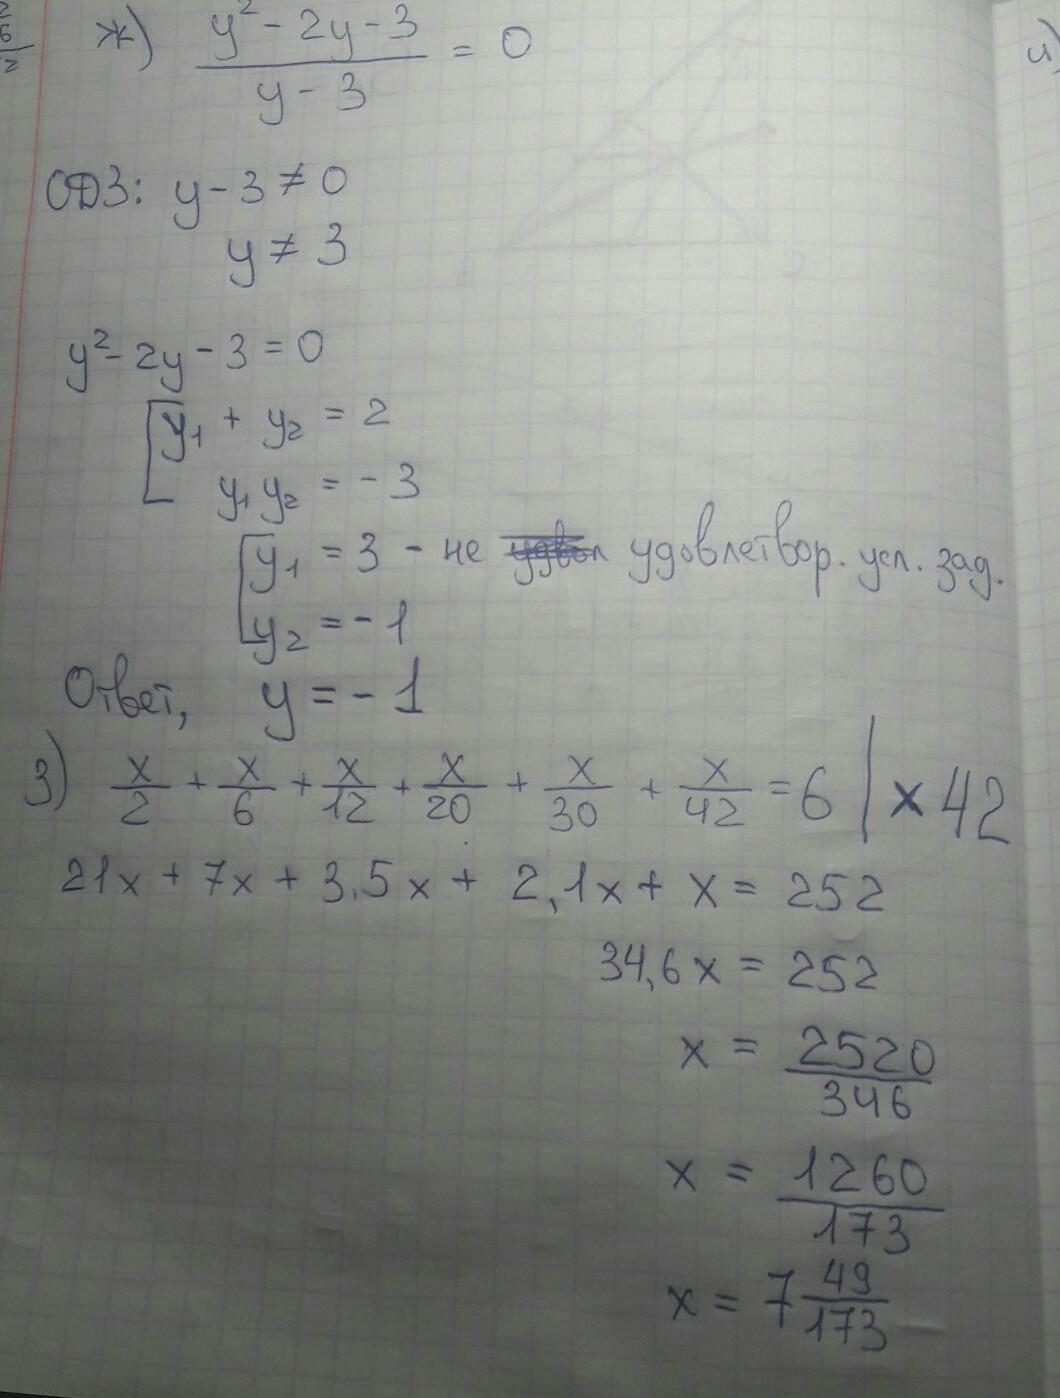 ж) (y² - 2y - 3)/(y - 3) = 0
ОДЗ: y - 3 ≠ 0
y ≠ 3
y² - 2y - 3 = 0
[y₁ + y₂ = 2
y₁ y₂ = - 3
[y₁ = 3 - не удовлетвор. усл. зад.
y₂ = - 1
Ответ, y = - 1
з) x/2 + x/6 + x/12 + x/20 + x/30 + x/42 = 6 | × 42
21x + 7x + 3,5x + 2,1x + x = 252
34,6x = 252
x = 2520/346
x = 1260/173
x = 7 49/173